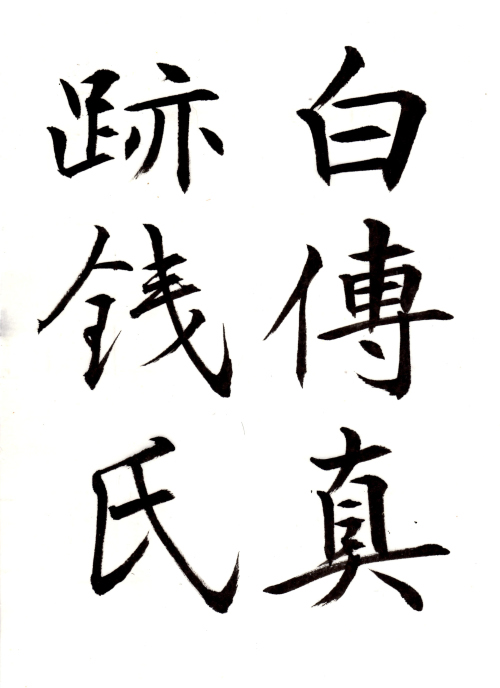 白傳真
跡銭氏